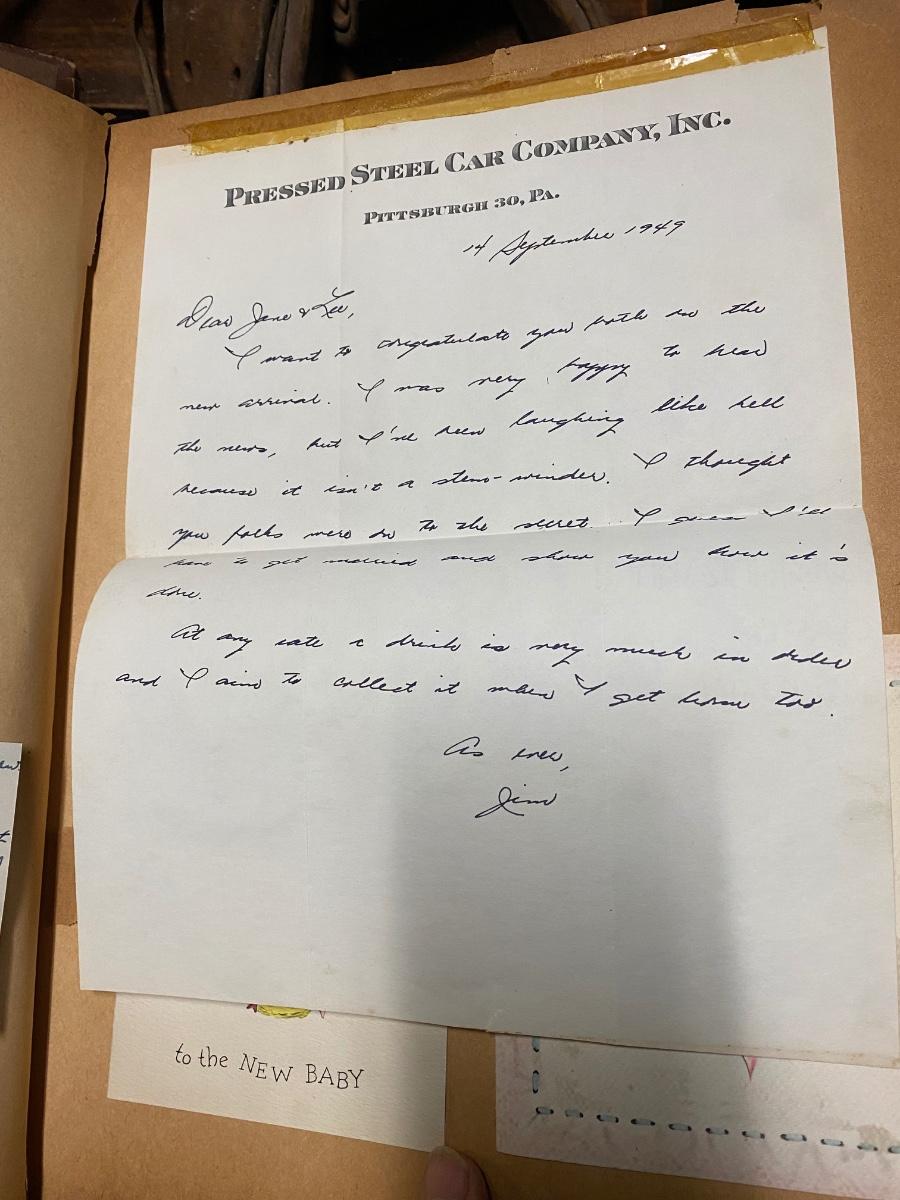 PRESSED STEEL CAR COMPANY, INC.
PITTSBURGH 30, PA.
14 September 1949
Dear Jane & Lee,
I want to congratulate you both on the
new arrival. I was very happy to hear
the news, but I've been laughing like hell
because it isn't a stem-winder. I thought
you folks were on to the secret. I guess I'll
have to get married and show you how it's
done.
At any rate a drink is very much in order
and I aim to collect it when I get home too.
As ever,
Jim
to the NEW BABY